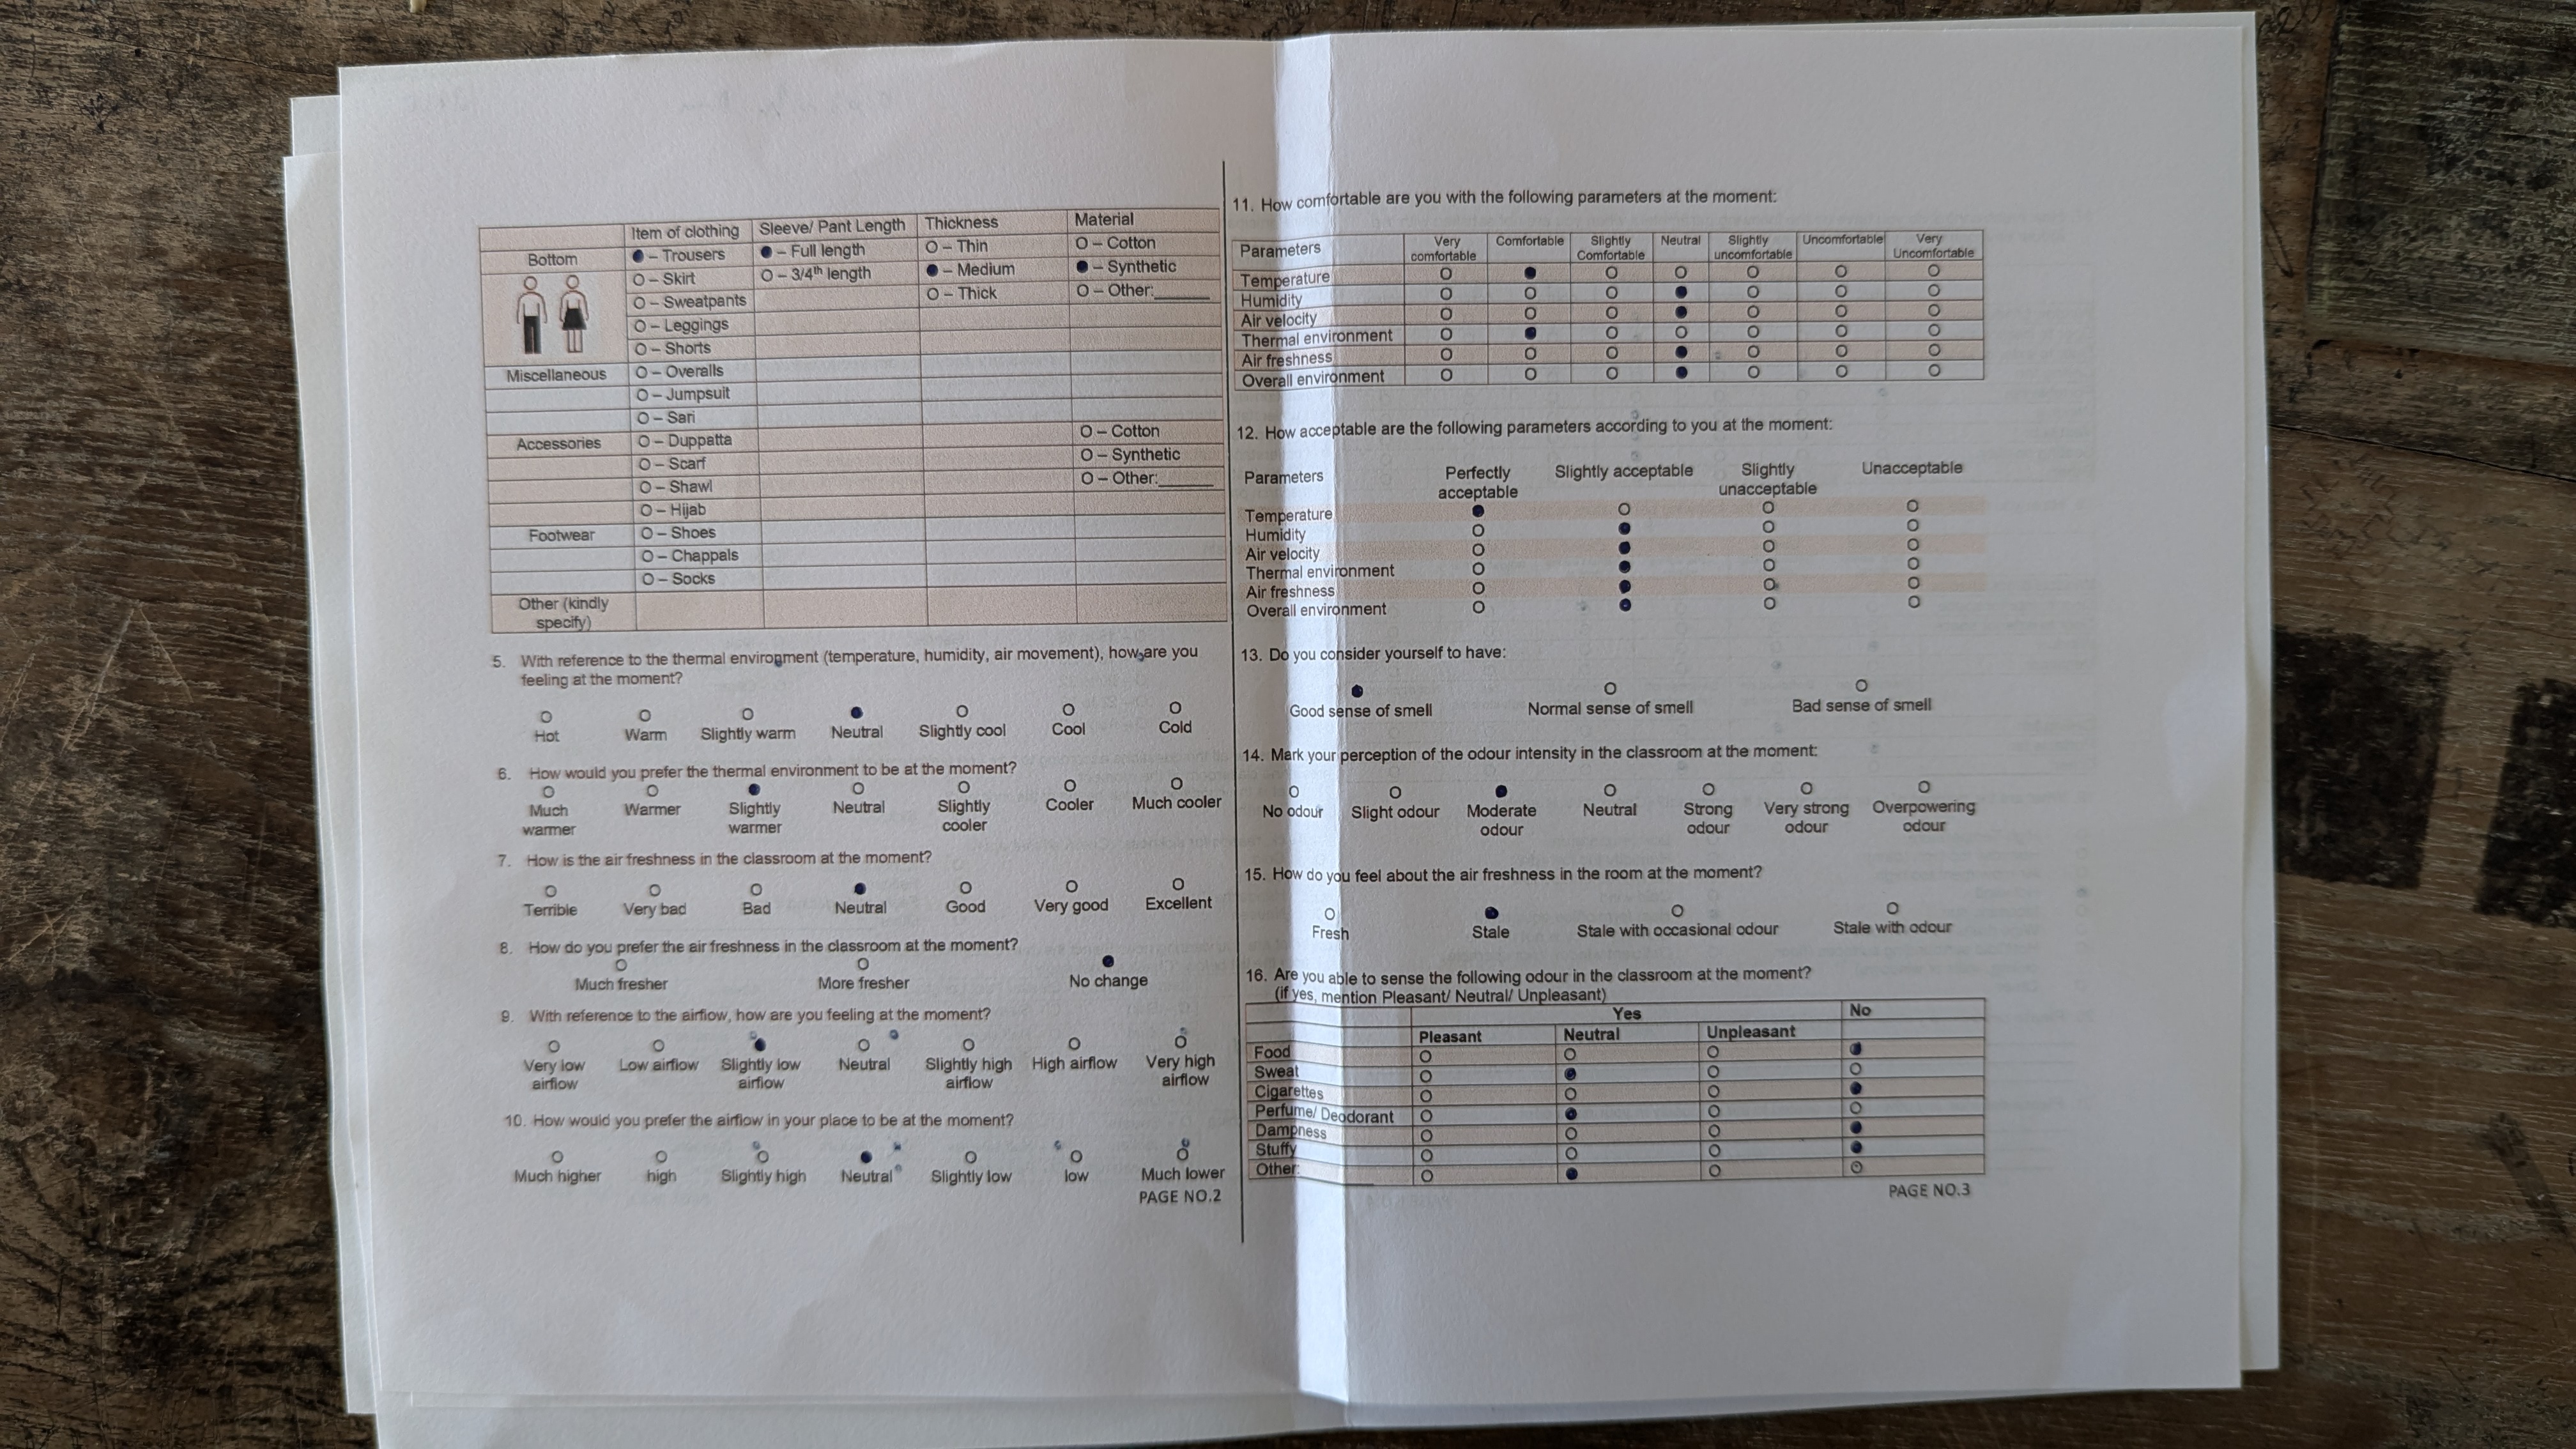 Item of clothing Sleeve/ Pant Length Thickness Material
Bottom ● – Trousers ● – Full length O – Thin O – Cotton
O – Skirt O – 3/4th length ● – Medium ● – Synthetic
O – Sweatpants O – Thick O – Other:______
O – Leggings
O – Shorts
Miscellaneous O – Overalls
O – Jumpsuit
O – Sari
Accessories O – Duppatta O – Cotton
O – Scarf O – Synthetic
O – Shawl O – Other:______
O – Hijab
Footwear O – Shoes
O – Chappals
O – Socks
Other (kindly
specify)
5. With reference to the thermal environment (temperature, humidity, air movement), how are you
feeling at the moment?
O O O ● O O O
Hot Warm Slightly warm Neutral Slightly cool Cool Cold
6. How would you prefer the thermal environment to be at the moment?
O O ● O O O O
Much Warmer Slightly Neutral Slightly Cooler Much cooler
warmer warmer cooler
7. How is the air freshness in the classroom at the moment?
O O O ● O O O
Terrible Very bad Bad Neutral Good Very good Excellent
8. How do you prefer the air freshness in the classroom at the moment?
O O ●
Much fresher More fresher No change
9. With reference to the airflow, how are you feeling at the moment?
O O ● O O O O
Very low Low airflow Slightly low Neutral Slightly high High airflow Very high
airflow airflow airflow airflow
10. How would you prefer the airflow in your place to be at the moment?
O O O ● O O O
Much higher high Slightly high Neutral Slightly low low Much lower
PAGE NO.2
11. How comfortable are you with the following parameters at the moment:
Parameters Very Comfortable Slightly Neutral Slightly Uncomfortable Very
comfortable Comfortable uncomfortable Uncomfortable
Temperature O ● O O O O O
Humidity O O O ● O O O
Air velocity O O O ● O O O
Thermal environment O ● O O O O O
Air freshness O O O ● O O O
Overall environment O O O ● O O O
12. How acceptable are the following parameters according to you at the moment:
Parameters Perfectly Slightly acceptable Slightly Unacceptable
acceptable unacceptable
Temperature ● O O O
Humidity O ● O O
Air velocity O ● O O
Thermal environment O ● O O
Air freshness O ● O O
Overall environment O ● O O
13. Do you consider yourself to have:
● O O
Good sense of smell Normal sense of smell Bad sense of smell
14. Mark your perception of the odour intensity in the classroom at the moment:
O O ● O O O O
No odour Slight odour Moderate Neutral Strong Very strong Overpowering
odour odour odour odour
15. How do you feel about the air freshness in the room at the moment?
O ● O O
Fresh Stale Stale with occasional odour Stale with odour
16. Are you able to sense the following odour in the classroom at the moment?
(if yes, mention Pleasant/ Neutral/ Unpleasant)
Yes No
Pleasant Neutral Unpleasant
Food O O O ●
Sweat O ● O O
Cigarettes O O O ●
Perfume/ Deodorant O ● O O
Dampness O O O ●
Stuffy O O O ●
Other:________ O ● O O
PAGE NO.3